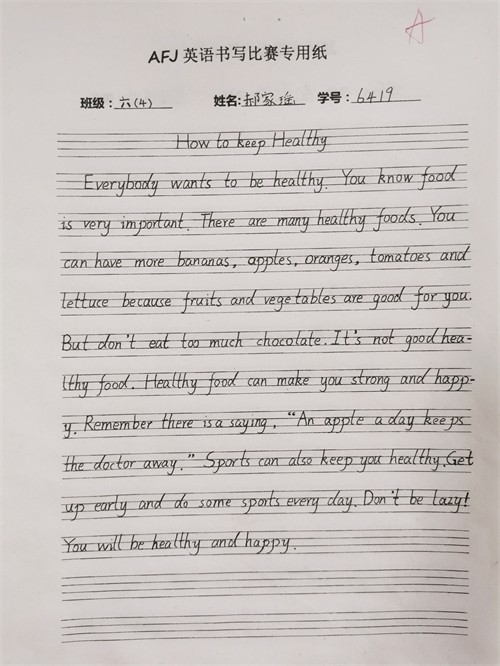 A
AFJ 英语书写比赛专用纸
班级: 六(4) 姓名: 郝家瑶 学号: 6419
How to keep Healthy
Everybody wants to be healthy. You know food
is very important. There are many healthy foods. You
can have more bananas, apples, oranges, tomatoes and
lettuce because fruits and vegetables are good for you.
But don't eat too much chocolate. It's not good hea-
lthy food. Healthy food can make you strong and happ-
y. Remember there is a saying, "An apple a day keeps
the doctor away." Sports can also keep you healthy. Get
up early and do some sports every day. Don't be lazy!
You will be healthy and happy.